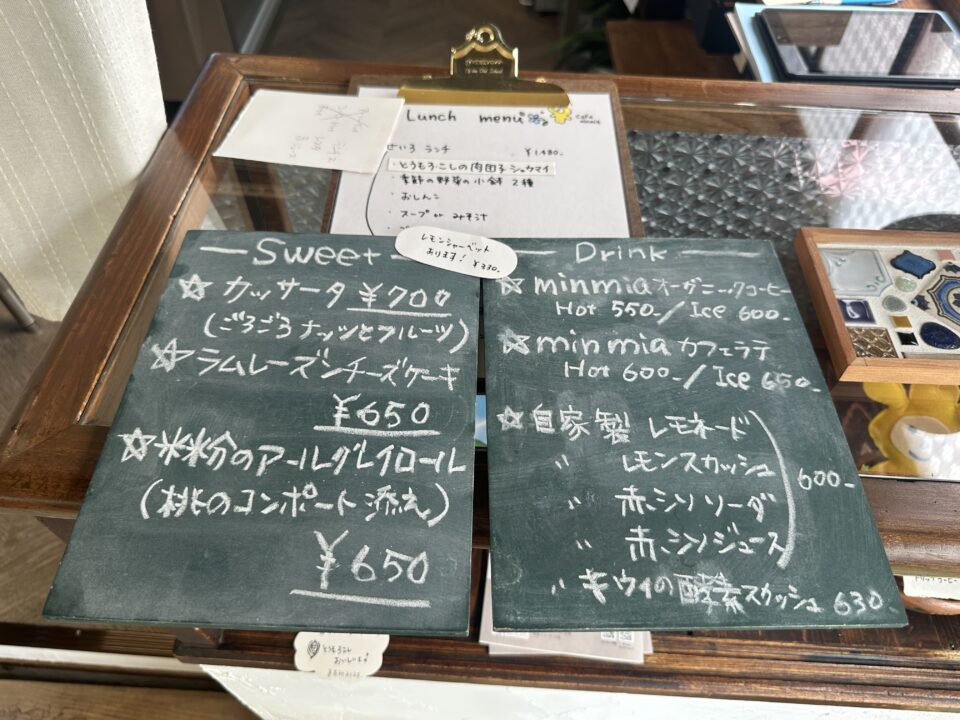 Lunch menu
せいろ ランチ ¥1,480-
・とうもろこしの肉団子シュウマイ
・季節の野菜の小鉢 2種
・おしんこ
・スープ or みそ汁
レモンシャーベット
あります! ¥330-
Sweet
☆ カッサータ ¥700
(ごろごろナッツとフルーツ)
☆ ラムレーズンチーズケーキ
¥650
☆ 米粉のアールグレイロール
(桃のコンポート添え)
¥650
Drink
☆ minmia オーガニックコーヒー
Hot 550-/ Ice 600-
☆ minmia カフェラテ
Hot 600-/ Ice 650-
☆ 自家製 レモネード
〃 レモンスカッシュ
600-
〃 赤シソソーダ
〃 赤シソジュース
〃 キウイの酵素スカッシュ 630-